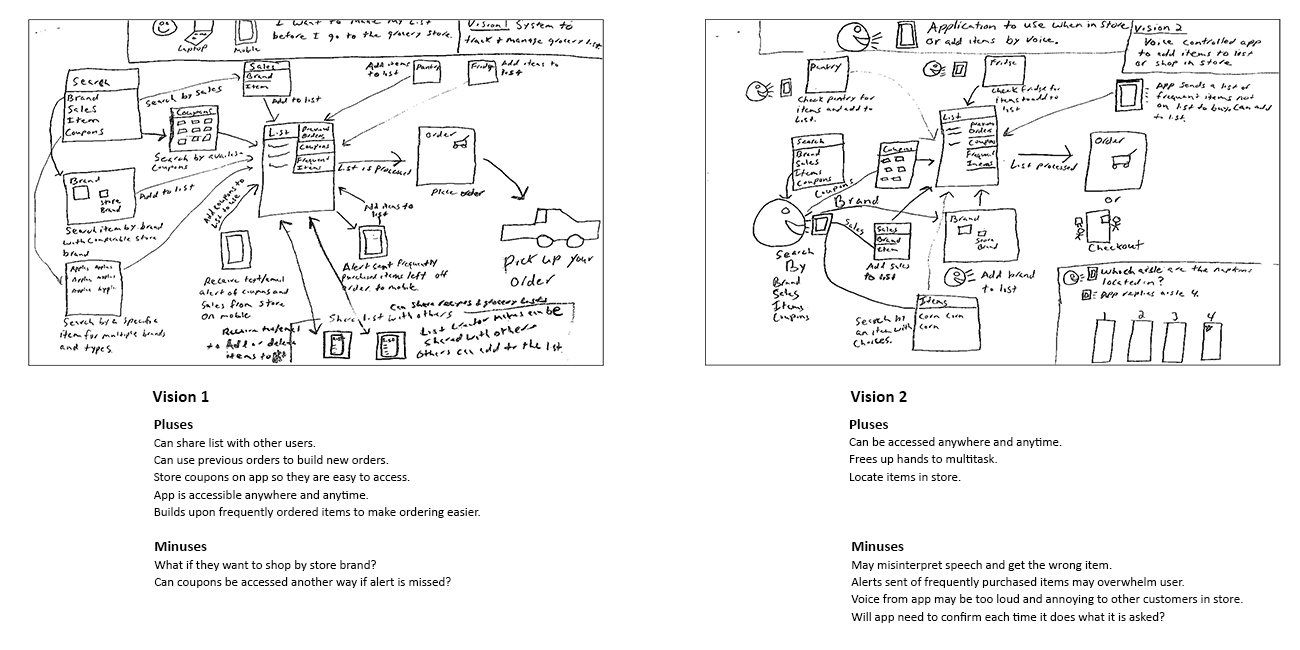 I want to make my list
before I go to the grocery store.
Laptop
Mobile
Vision 1 System to
track + manage grocery list
Search
Brand
Sales
Item
Coupons
Search by sales
Sales
Brand
Item
Add to list
Add items
to list
Pantry
Fridge
Add items to
list
Coupons
Search by
Coupons
List
Previous
Orders
Coupons
Frequent
Items
List is processed
Order
Place order
Pick up your
Order
Brand
Store
Brand
Add to list
Search item by brand
with comparable store
brand
Add coupons to
list to use
Apples Apples
Apples Apples
Apples Apples
Search by a specific
item for multiple brands
and types.
Receive text/email
alert of coupons and
Sales from store
on mobile
Add items to
list
Alert sent frequently
purchased items left off
order to mobile.
Share list with others
Can share recipes + grocery lists
Receive
to Add or delete
items to list
List
List
List creator makes can be
shared with others
Others can add to the list.
Application to use when in store
or add items by voice.
Vision 2
Voice controlled app
to add items to list
or shop in store
Pantry
Check pantry for
items and add to
List.
Fridge
Check fridge for
items to add to
list
App sends a list of
frequent items not
on list to buy. Can add
to list.
Search
Brand
Sales
Items
Coupons
Coupons
List
Previous
Orders
Coupons
Frequent
Items
List processed
Order
or
Checkout
Coupons
Brand
Sales
Sales
Brand
Item
Add sales
to list
Brand
Store
Brand
Add brand
to list
Search
By
Brand
Sales
Items
Coupons
Search by
an item with
Choices.
Items
Corn Corn
Corn
Which aisle are the napkins
located in?
App replies aisle 4.
1 2 3 4
Vision 1
Pluses
Can share list with other users.
Can use previous orders to build new orders.
Store coupons on app so they are easy to access.
App is accessible anywhere and anytime.
Builds upon frequently ordered items to make ordering easier.
Minuses
What if they want to shop by store brand?
Can coupons be accessed another way if alert is missed?
Vision 2
Pluses
Can be accessed anywhere and anytime.
Frees up hands to multitask.
Locate items in store.
Minuses
May misinterpret speech and get the wrong item.
Alerts sent of frequently purchased items may overwhelm user.
Voice from app may be too loud and annoying to other customers in store.
Will app need to confirm each time it does what it is asked?